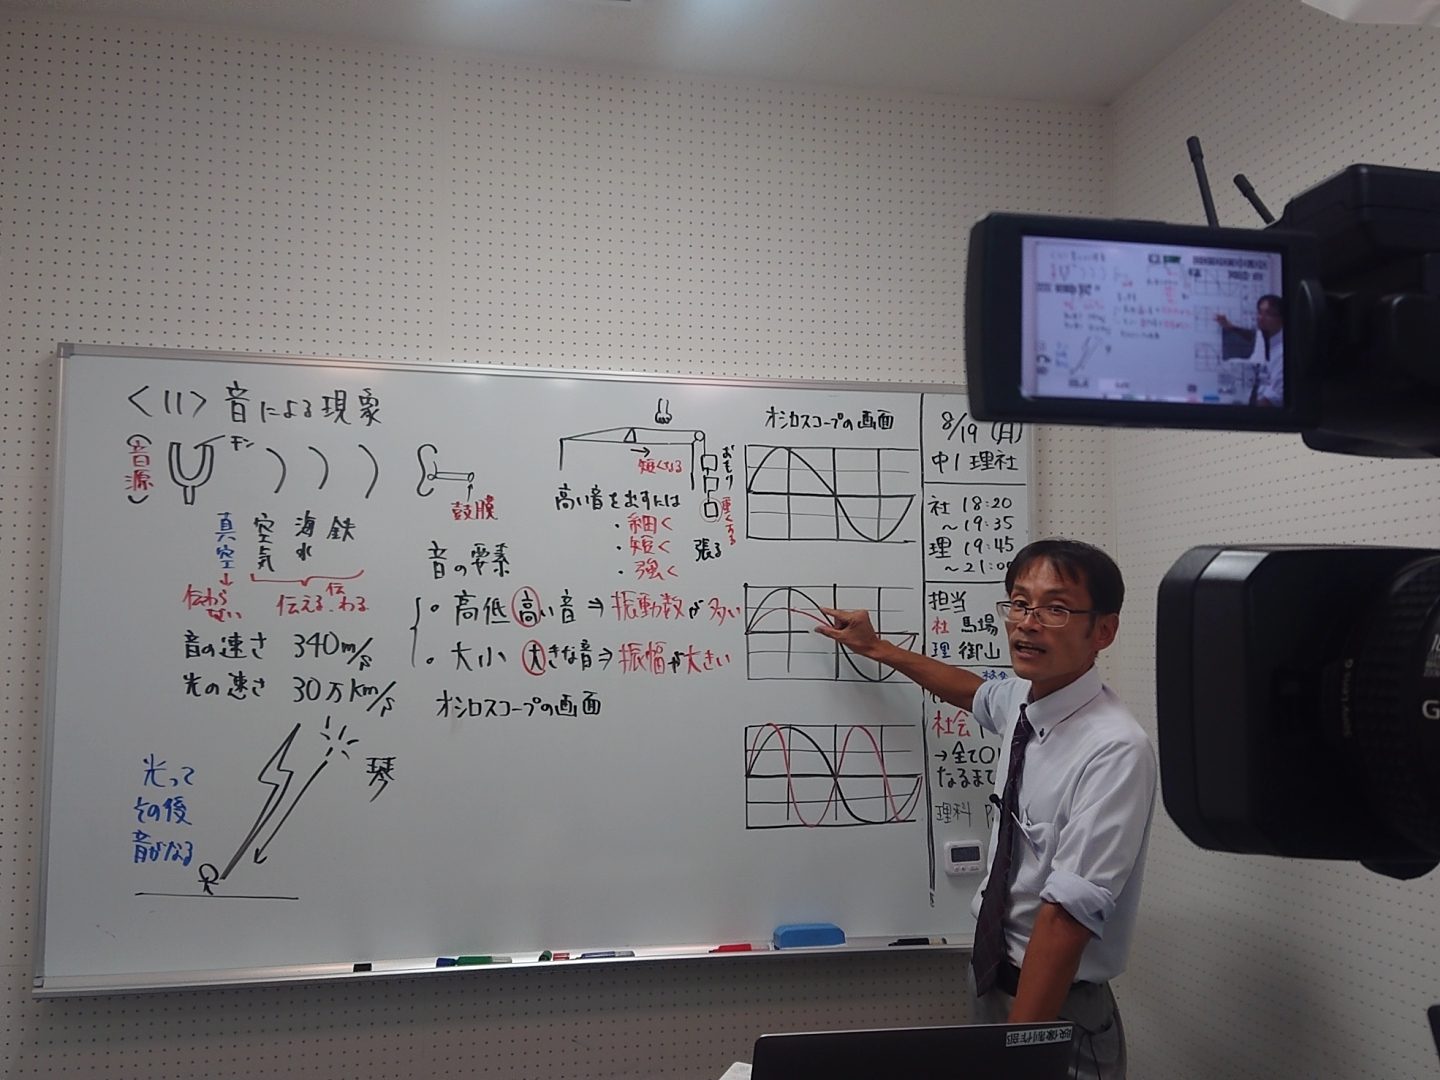 <11> 音による現象
(音源)
チン
鼓膜
真空
空気
海水
鉄
伝わらない
伝える・伝わる
音の速さ 340m/s
光の速さ 30万km/s
光って
その後
音がなる
短くなる
おもり
重くする
高い音を出すには
・細く
・短く 張る
・強く
音の要素
・高低 高い音⇒振動数が多い
・大小 大きな音⇒振幅が大きい
オシロスコープの画面
オシロスコープの画面
8/19 (月)
中1 理社
社 18:20
~19:35
理 19:45
~21:0
担当
社 馬場
理 御山
社会
→全て○
なるまで
理科
映像制作部